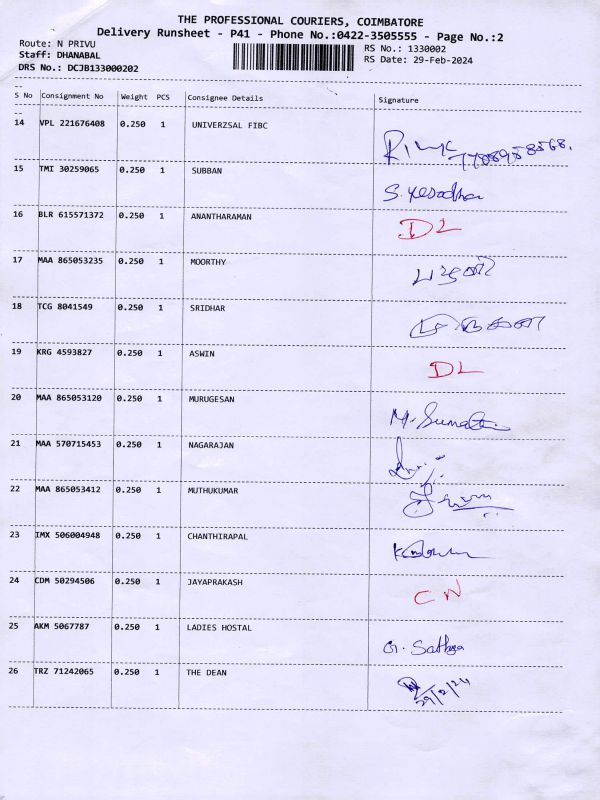 THE PROFESSIONAL COURIERS, COIMBATORE
Delivery Runsheet - P41 - Phone No.:0422-3505555 - Page No.:2
Route: N PRIVU RS No.: 1330002
Staff: DHANABAL RS Date: 29-Feb-2024
DRS No.: DCJB133000202
S No Consignment No Weight PCS Consignee Details Signature
14 VPL 221676408 0.250 1 UNIVERZSAL FIBC
15 TMI 30259065 0.250 1 SUBBAN S. Yesodha
16 BLR 615571372 0.250 1 ANANTHARAMAN DL
17 MAA 865053235 0.250 1 MOORTHY
18 TCG 8041549 0.250 1 SRIDHAR
19 KRG 4593827 0.250 1 ASWIN DL
20 MAA 865053120 0.250 1 MURUGESAN M. Sumathi
21 MAA 570715453 0.250 1 NAGARAJAN
22 MAA 865053412 0.250 1 MUTHUKUMAR
23 IMX 506004948 0.250 1 CHANTHIRAPAL
24 CDM 50294506 0.250 1 JAYAPRAKASH CN
25 AKM 5067787 0.250 1 LADIES HOSTAL G. Sathya
26 TRZ 71242065 0.250 1 THE DEAN 29/2/24